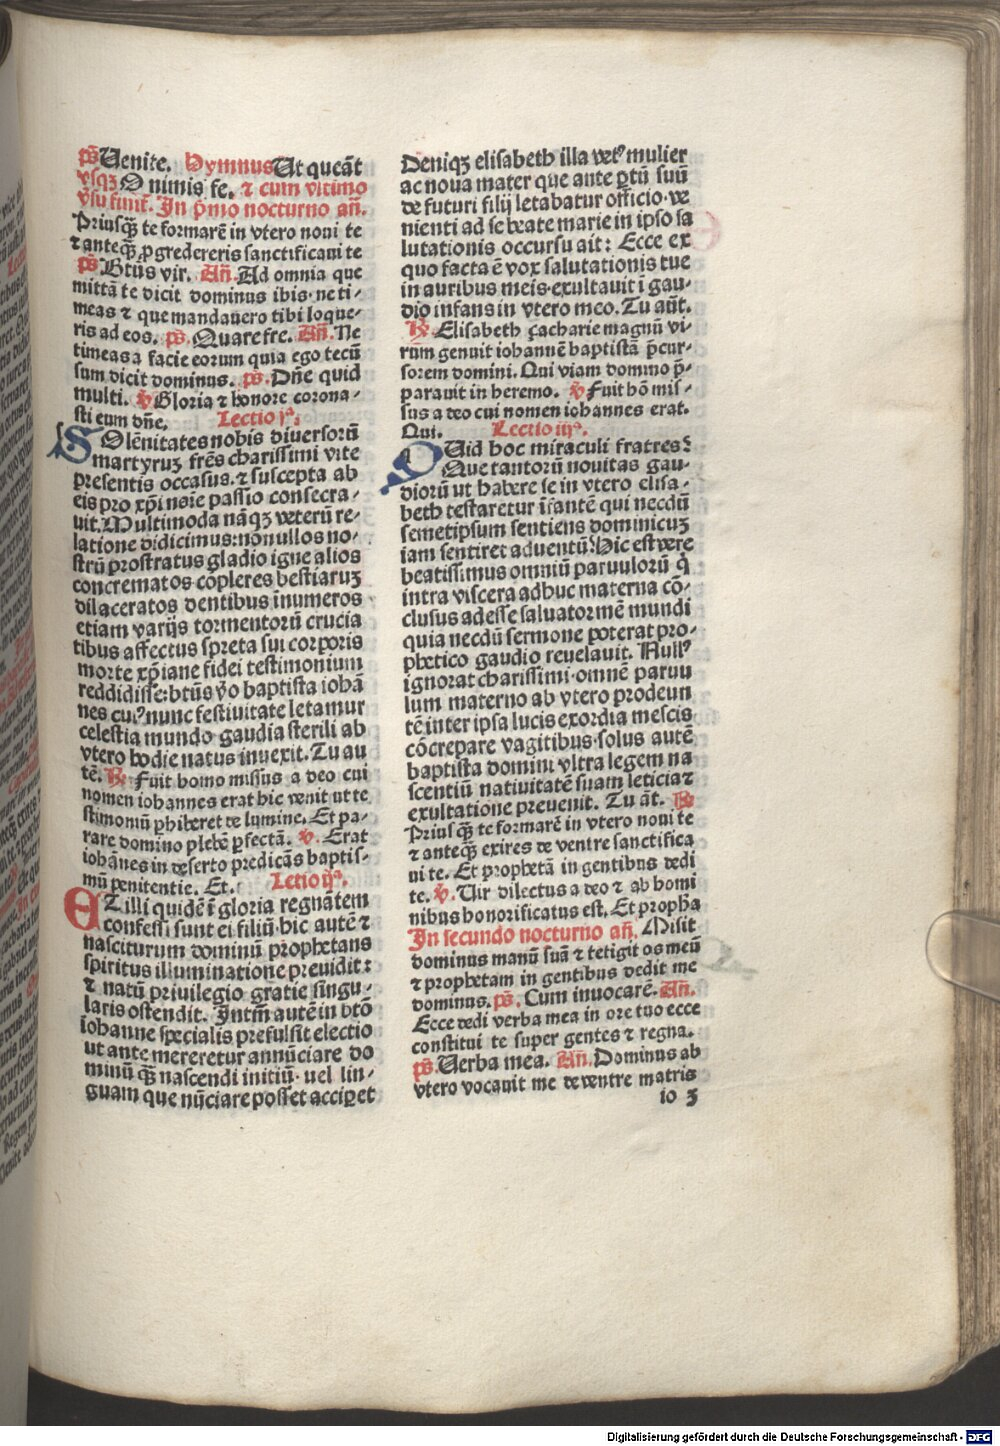 ps̄ Uenite. Hymnus Ut queāt
vsqꝫ O nimis fe. ⁊ cum vltimo
v̄su finit̄. In p̄mo nocturno an̄.
Priusqꝫ̄ te formarē in vtero noui te
⁊ anteqꝫ̄ ꝓgredereris sanctificaui te
ps̄ Bt̄us vir. An̄. Ad omnia que
mittā te dicit dominus ibis· ne ti⸗
meas ⁊ que mandauero tibi loque⸗
ris ad eos. ps̄. Quare fre. An̄. Ne
timeas a facie eorum quia ego tecū
sum dicit dominus. ps̄. Dn̄e quid
multi. v̄ Gloria ⁊ honore corona⸗
sti eum dn̄e. Lectio jᵃ.
SOlēnitates nobis diuersorū
martyruꝫ fr̄es charissimi vite
presentis occasus. ⁊ suscepta ab
eis pro xp̄i noīe passio consecra⸗
uit. Multimoda nāqꝫ veterū re⸗
latione didicimus: nōnullos no⸗
strū prostratus gladio igne alios
concrematos cōpleres bestiaruꝫ
dilaceratos dentibus īnumeros
etiam varijs tormentorū crucia
tibus affectus spreta sui corporis
morte xp̄iane fidei testimonium
reddidisse: bt̄us v̄o baptista iohā
nes cuiꝰ nunc festiuitate letamur
celestia mundo gaudia sterili ab
vtero hodie natus inuexit. Tu au
tē. R̄ Fuit homo missus a deo cui
nomen iohannes erat hic venit ut te
stimoniū ꝑhiberet de lumine. Et pa⸗
rare domino plebē ꝑfectā. v̄. Erat
iohānes in deserto predicās baptis⸗
mū penitentie. Et. Letio ijᵃ.
ET illi quidē ī gloria regnātem
confessi sunt ei filiū· hic autē ⁊
nasciturum dominū prophetans
spiritus illuminatione preuidit:
⁊ natū priuilegio gratie singu⸗
laris ostendit. Intm̄ autē in btō
iohanne specialis prefulsit electio
ut ante mereretur annūciare do
minū qꝫ̄ nascendi initiū· uel lin⸗
guam que nūciare posset acciꝑet
Deniqꝫ elisabeth illa vetꝰ mulier
ac noua mater que ante ꝑtū suū
de futuri filij letabatur officio· ve
nienti ad se beate marie in ipso sa
lutationis occursu ait: Ecce ex
quo facta ē vox salutationis tue
in auribus meis· exultauit i gau⸗
dio infans in vtero meo. Tu aūt.
R̄ Elisabeth çacharie magnū vi⸗
rum genuit iohannē baptistā p̄cur⸗
sorem domini. Qui viam domino p̄⸗
parauit in heremo. v̄ Fuit hō mis⸗
sus a deo cui nomen iohannes erat.
Qui. Lectio iijᵃ.
QUid hoc miraculi fratres?
Que tantorū nouitas gau⸗
diorū ut habere se in vtero elisa⸗
beth testaretur īfantē qui necdū
semetipsum sentiens dominicuꝫ
iam sentiret aduentū? Hic est vere
beatissimus omniū paruulorū q̄
intra viscera adhuc materna cō⸗
clusus adesse saluatormē mundi
quia necdū sermone poterat pro⸗
phetico gaudio reuelauit. Nullꝰ
ignorat charissimi· omnē paruu
lum materno ab vtero prodeun
tē inter ipsa lucis exordia mescis
cōcrepare vagitibus· solus autē
baptista domini vltra legem na
scentiū natiuitatē suam leticia ⁊
exultatione preuenit. Tu āt. R̄
Prius qꝫ̄ te formarē in vtero noui te
⁊ anteqꝫ̄ exires de ventre sanctifica
ui te. Et prophetā in gentibus dedi
te. v̄. Uir dilectus a deo ⁊ ab homi
nibus honorificatus est. Et propha
In secundo nocturno an̄. Misit
dominus manū suā ⁊ tetigit os meū
⁊ prophetam in gentibus dedit me
dominus. ps̄. Cum inuocarē. An̄.
Ecce dedi verba mea in ore tuo ecce
constitui te super gentes ⁊ regna.
ps̄. Uerba mea. An̄. Dominus ab
vtero vocauit me de ventre matris
io 3
Digitalisierung gefördert durch die Deutsche Forschungsgemeinschaft - DFG